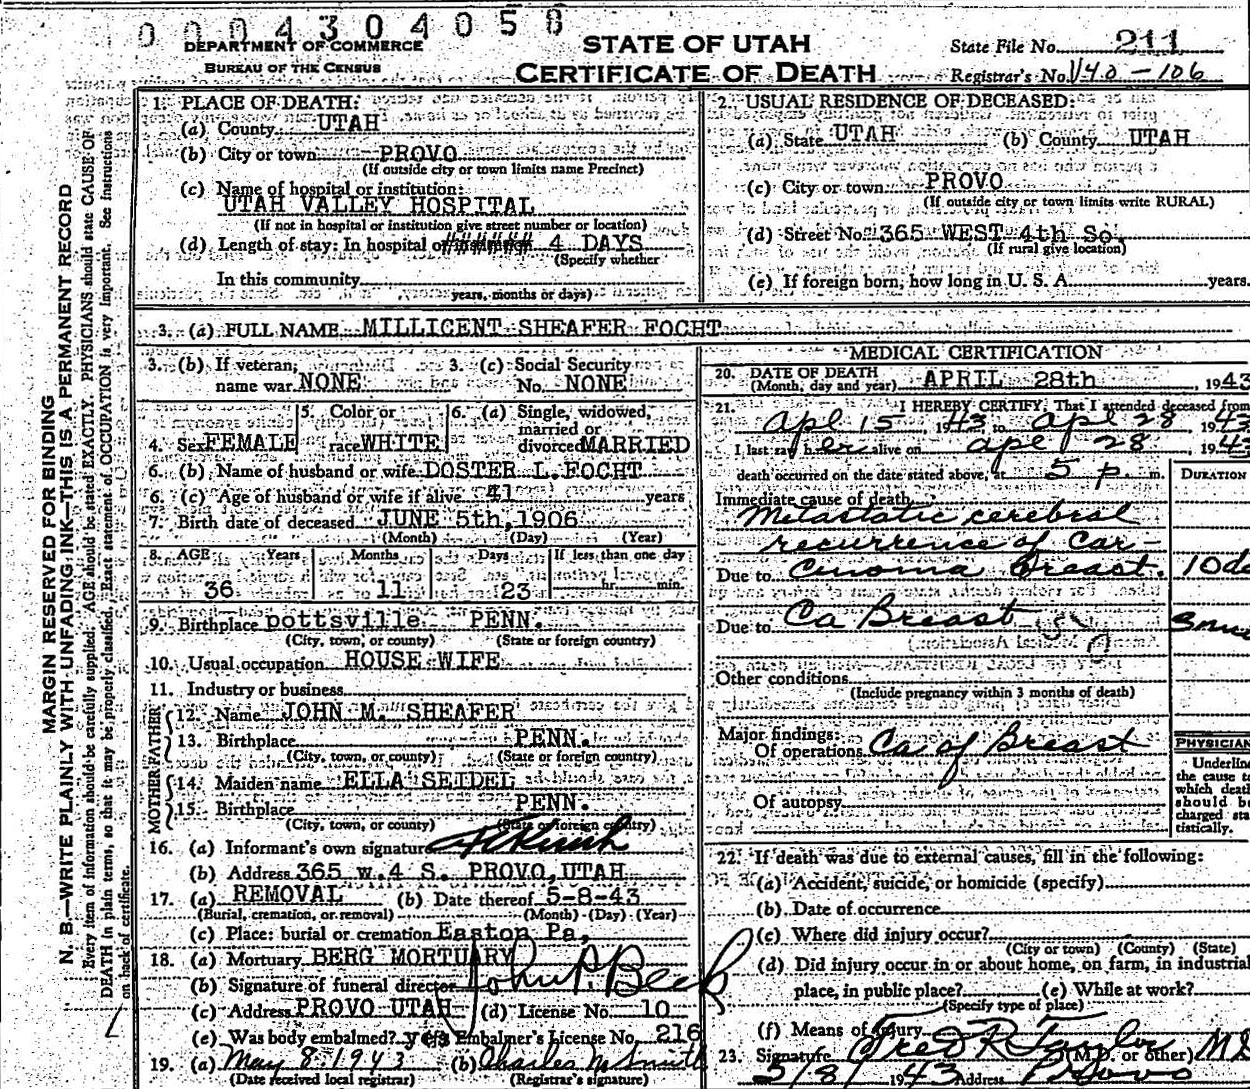 0004304058
DEPARTMENT OF COMMERCE
BUREAU OF THE CENSUS
STATE OF UTAH
CERTIFICATE OF DEATH
State File No. 211
Registrar's No. V40-106
MARGIN RESERVED FOR BINDING
N. B.—WRITE PLAINLY WITH UNFADING INK—THIS IS A PERMANENT RECORD
Every item of information should be carefully supplied. AGE should be stated EXACTLY. PHYSICIANS should state CAUSE OF
DEATH in plain terms, so that it may be properly classified. Exact statement of OCCUPATION is very important. See instructions
on back of certificate.
1. PLACE OF DEATH:
(a) County UTAH
(b) City or town PROVO
(If outside city or town limits name Precinct)
(c) Name of hospital or institution:
UTAH VALLEY HOSPITAL
(If not in hospital or institution give street number or location)
(d) Length of stay: In hospital or 4 DAYS
(Specify whether
In this community
years, months or days)
2. USUAL RESIDENCE OF DECEASED:
(a) State UTAH (b) County UTAH
(c) City or town PROVO
(If outside city or town limits write RURAL)
(d) Street No. 365 WEST 4th So.
(If rural give location)
(e) If foreign born, how long in U. S. A. years.
3. (a) FULL NAME MILLICENT SHEAFER FOCHT
3. (b) If veteran, 3. (c) Social Security
name war NONE No. NONE
4. Sex FEMALE 5. Color or race WHITE 6. (a) Single, widowed, married or divorced MARRIED
6. (b) Name of husband or wife DOSTER L. FOCHT
6. (c) Age of husband or wife if alive 41 years
7. Birth date of deceased JUNE 5th, 1906
(Month) (Day) (Year)
8. AGE Years Months Days If less than one day
36 11 23 hr. min.
9. Birthplace pottsville PENN.
(City, town, or county) (State or foreign country)
10. Usual occupation HOUSE WIFE
11. Industry or business
FATHER
12. Name JOHN M. SHEAFER
13. Birthplace PENN.
(City, town, or county) (State or foreign country)
MOTHER
14. Maiden name ELLA SEIDEL
15. Birthplace PENN.
(City, town, or county) (State or foreign country)
16. (a) Informant's own signature
(b) Address 365 w. 4 S. PROVO, UTAH
17. (a) REMOVAL (b) Date thereof 5-8-43
(Burial, cremation, or removal) (Month) (Day) (Year)
(c) Place: burial or cremation Easton Pa,
18. (a) Mortuary BERG MORTUARY
(b) Signature of funeral director John P. Beck
(c) Address PROVO UTAH (d) License No. 10
(e) Was body embalmed? yes Embalmer's License No. 216
19. (a) May 8 1943 (b) Charles N Smith
(Date received local registrar) (Registrar's signature)
MEDICAL CERTIFICATION
20. DATE OF DEATH
(Month, day and year) APRIL 28th, 1943
21. I HEREBY CERTIFY, That I attended deceased from
Apl 15, 1943, to Apl 28, 1943
I last saw her alive on apl 28, 1943
death occurred on the date stated above, at 5 p. m.
DURATION
Immediate cause of death
Metastatic cerebral
recurrence of Car-
Due to cinoma Breast. 10 da
Due to Ca Breast
Other conditions
(Include pregnancy within 3 months of death)
Major findings:
Of operations Ca of Breast
Of autopsy
PHYSICIAN
Underline
the cause to
which death
should be
charged sta-
tistically.
22. If death was due to external causes, fill in the following:
(a) Accident, suicide, or homicide (specify)
(b) Date of occurrence
(c) Where did injury occur?
(City or town) (County) (State)
(d) Did injury occur in or about home, on farm, in industrial
place, in public place? (e) While at work?
(Specify type of place)
(f) Means of injury
23. Signature Fred R Taylor (M.D. or other) M D
5/8/1943 Address Provo